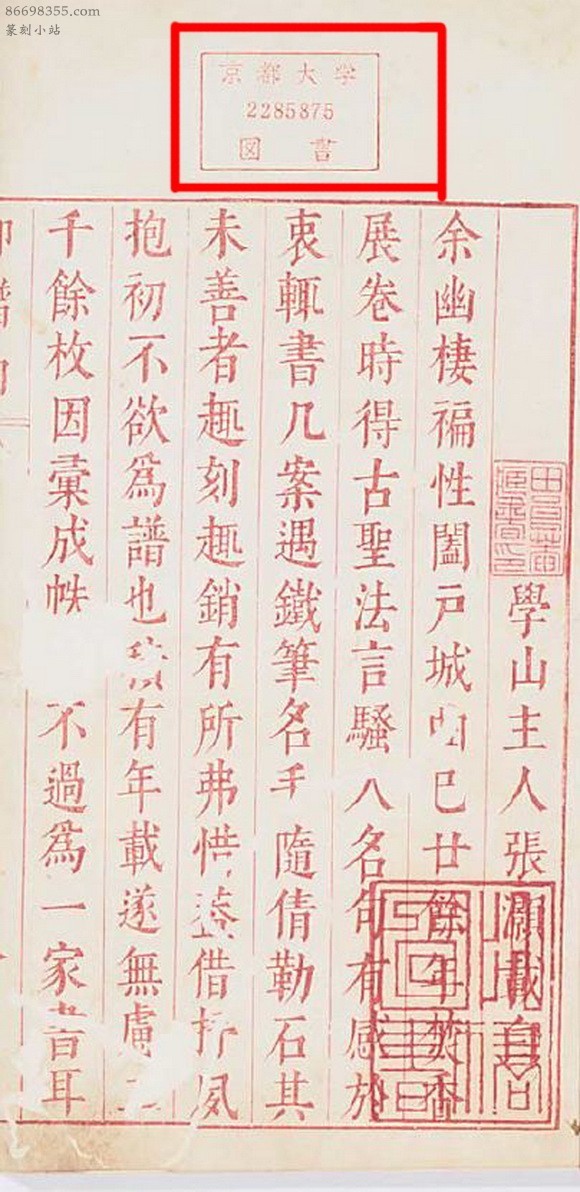 86698355.com
篆刻小站
京都大学
2285875
図書
學山主人張灝載自
余幽棲褊性闔戸城 已廿餘年焚香
展卷時得古聖法言騷人名句有感於
衷輒書几案遇鐵筆名手隨倩勒石其
未善者趣刻趣銷有所弗惜 借抒夙
抱初不欲為譜也 有年載遂無慮
千餘枚因彙成帙 不過為一家書耳